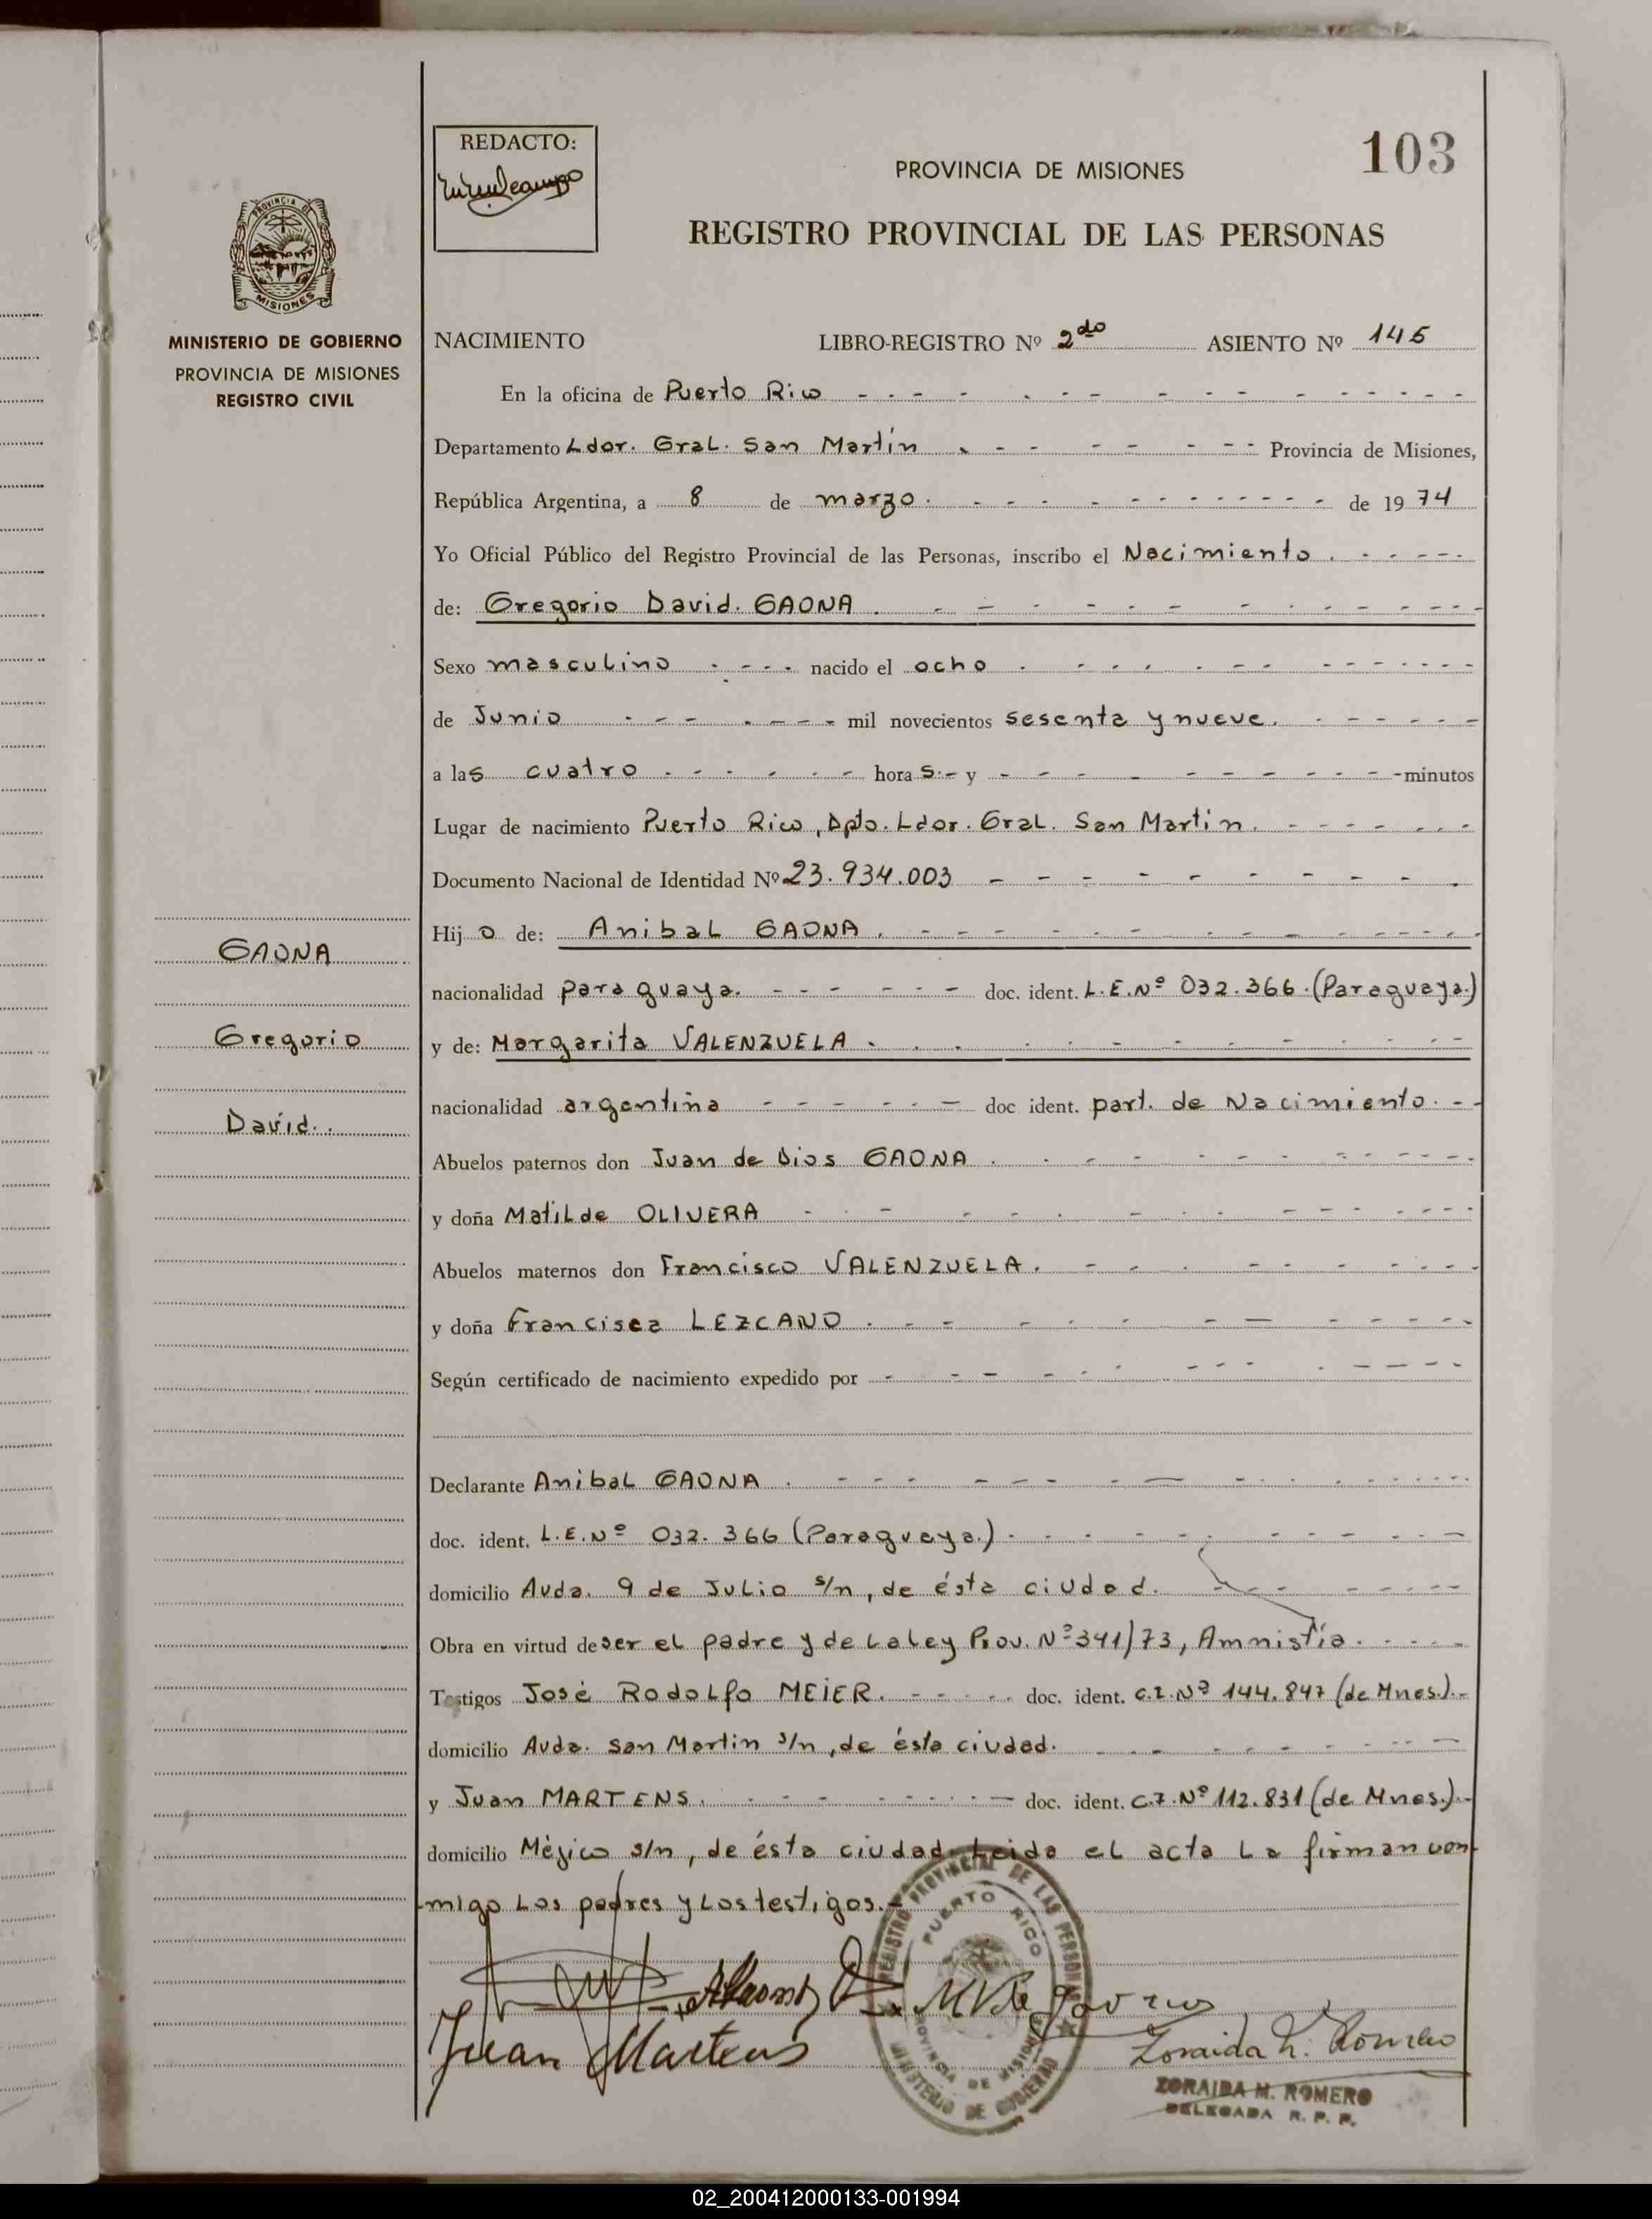 REDACTO:
103
PROVINCIA DE MISIONES
REGISTRO PROVINCIAL DE LAS PERSONAS
PROVINCIA DE
MISIONES
MINISTERIO DE GOBIERNO
PROVINCIA DE MISIONES
REGISTRO CIVIL
NACIMIENTO LIBRO-REGISTRO Nº 2do ASIENTO Nº 145
En la oficina de Puerto Rico
Departamento Ldor. Gral. San Martín Provincia de Misiones,
República Argentina, a 8 de marzo. de 1974
Yo Oficial Público del Registro Provincial de las Personas, inscribo el Nacimiento.
de: Gregorio David. GAONA.
Sexo masculino nacido el ocho
de Junio mil novecientos sesenta y nueve.
a las cuatro horas.- y minutos
Lugar de nacimiento Puerto Rico, Dpto. Ldor. Gral. San Martín.
Documento Nacional de Identidad Nº 23.934.003
Hijo de: Anibal GAONA.
nacionalidad paraguaya. doc. ident. L.E.Nº 032.366.(Paraguaya.)
y de: Margarita VALENZUELA.
nacionalidad argentina doc ident. part. de Nacimiento.
Abuelos paternos don Juan de Dios GAONA.
y doña Matilde OLIVERA
Abuelos maternos don Francisco VALENZUELA.
y doña Francisca LEZCANO.
Según certificado de nacimiento expedido por
Declarante Anibal GAONA.
doc. ident. L.E.Nº 032.366 (Paraguaya.)
domicilio Avda. 9 de Julio s/n, de ésta ciudad.
Obra en virtud de ser el padre y de La Ley Prov. Nº 341/73, Amnistía.
Testigos José Rodolfo MEIER. doc. ident. C.I.Nº 144.847 (de Mnes.).-
domicilio Avda. San Martin s/n, de ésta ciudad.
y Juan MARTENS. doc. ident. C.I.Nº 112.831 (de Mnes.).-
domicilio Méjico s/n, de ésta ciudad. Leida el acta La firman con-
migo Los padres y Los testigos.-
GAONA
Gregorio
David.
REGISTRO PROVINCIAL DE LAS PERSONAS
PUERTO RICO
PROVINCIA DE MISIONES
MINISTERIO DE GOBIERNO
Juan Martens
Zoraida M. Romero
ZORAIDA M. ROMERO
DELEGADA R. P. P.
02_200412000133-001994